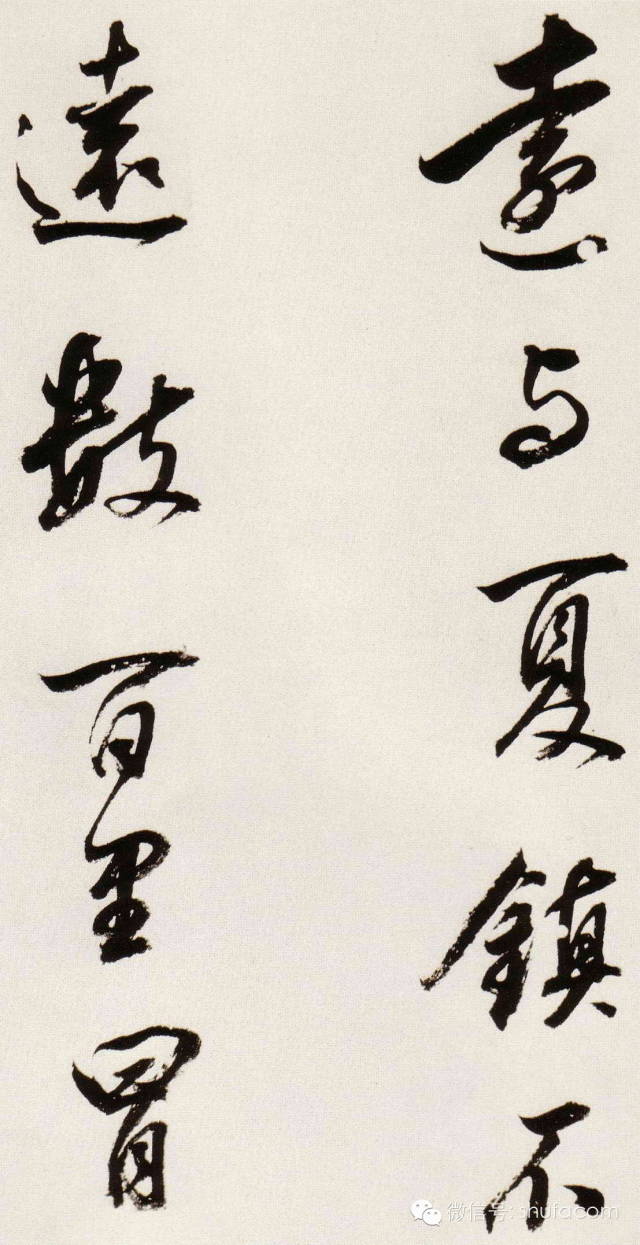 与夏鎮不
遠數百里冒
微信号: shufacom